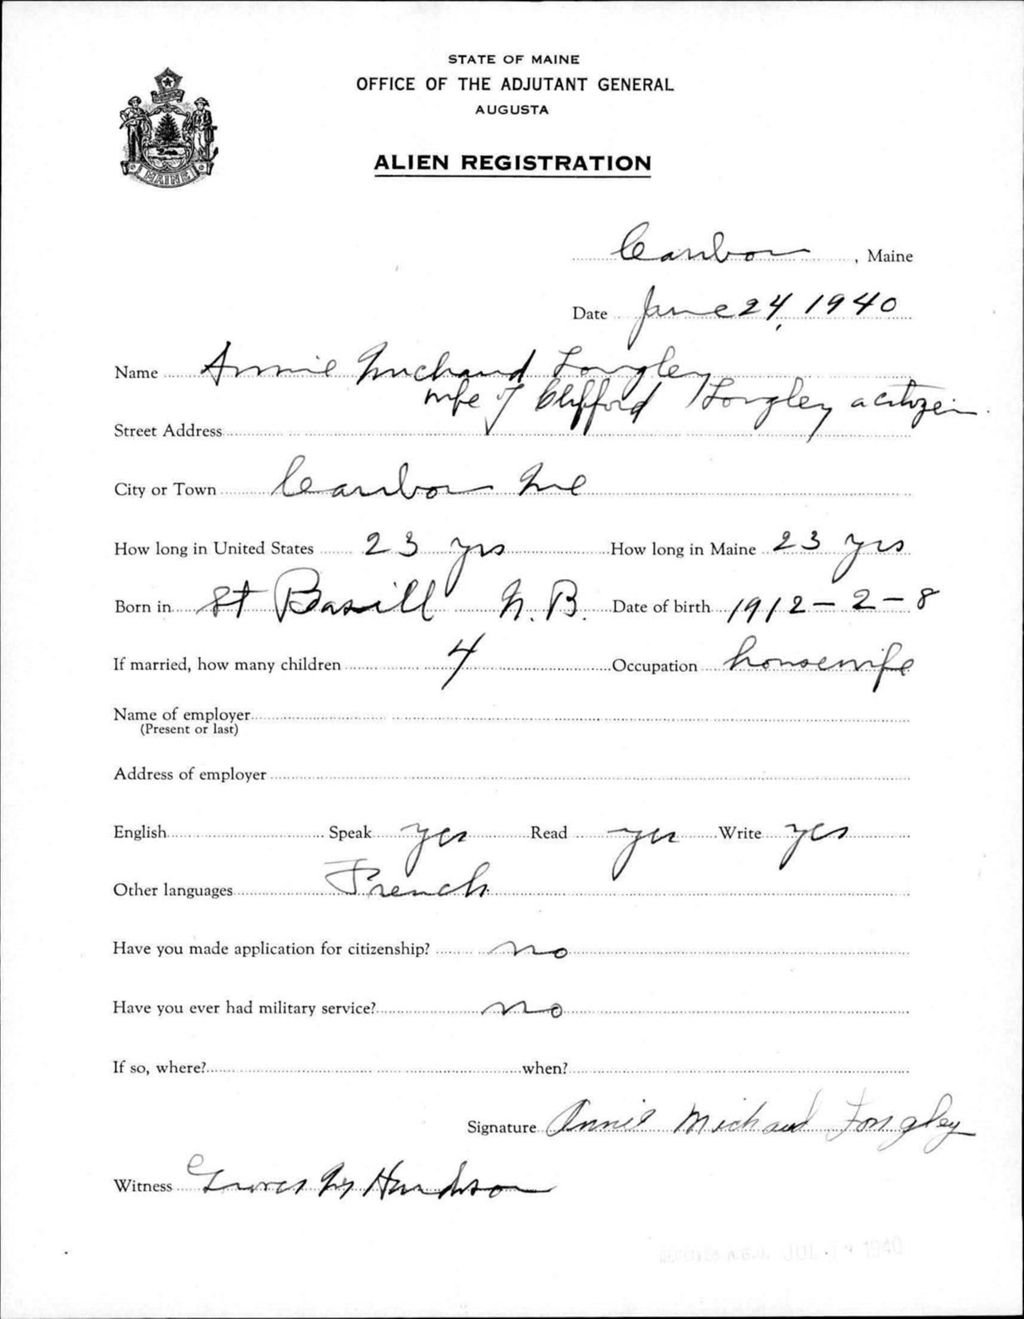 STATE OF MAINE
OFFICE OF THE ADJUTANT GENERAL
AUGUSTA
ALIEN REGISTRATION
MAINE
Caribou, Maine
Date June 24, 1940
Name Annie Michaud Longley
wife of Clifford Longley a citizen
Street Address
City or Town Caribou Me
How long in United States 23 yrs How long in Maine 23 yrs
Born in St Basill N.B. Date of birth 1912-2-8
If married, how many children 4 Occupation housewife
Name of employer
(Present or last)
Address of employer
English Speak yes Read yes Write yes
Other languages French
Have you made application for citizenship? no
Have you ever had military service? no
If so, where? when?
Signature Annie Michaud Longley
Witness
JUL 1940